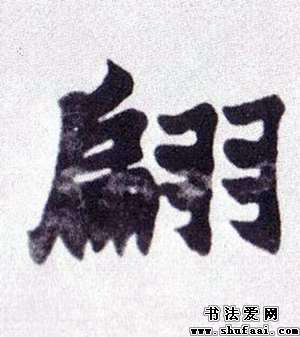 翩
书法爱网
www.shufaai.com